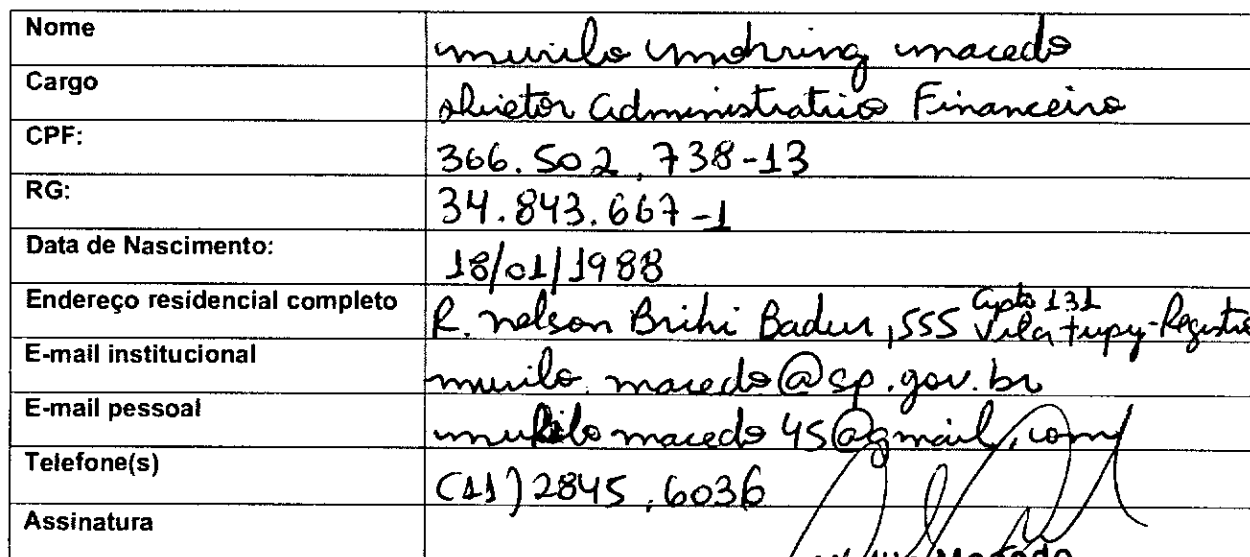 Nome murilo mohring macedo
Cargo Diretor Administrativo Financeiro
CPF: 366.502.738-13
RG: 34.843.667-1
Data de Nascimento: 18/01/1988
Endereço residencial completo R. nelson Brihi Badur, 555 Apto 131 Vila tupy-Registro
E-mail institucional murilo.macedo@sp.gov.br
E-mail pessoal murilomacedo45@gmail.com
Telefone(s) (11) 2845.6036
Assinatura
Macedo